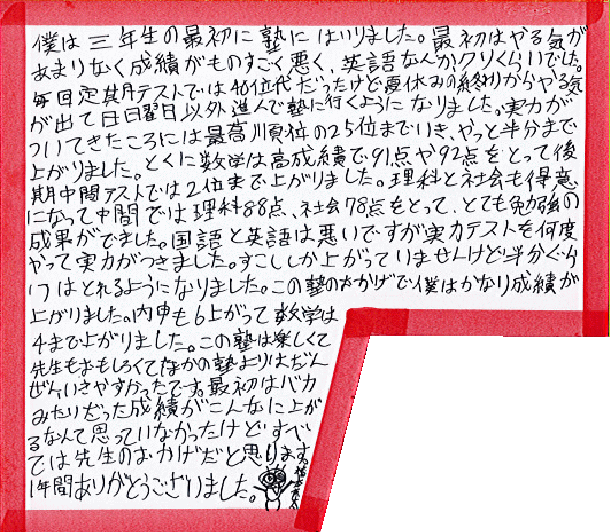 僕は三年生の最初に塾にはいりました。最初はやる気が
あまりなく成績がものすごく悪く、英語なんかクリくらいでした。
毎回定期テストでは40位代だったけど夏休みの終りからやる気
が出て日日曜日以外進んで塾に行くようになりました。実力が
ついてきたころには最高順位の25位までいき、やっと半分まで
上がりました。とくに数学は高成績で91点や92点をとって後
期中間テストでは2位まで上がりました。理科と社会も得意
になって中間では理科88点、社会78点をとって、とても勉強の
成果がでました。国語と英語は悪いですが実力テストを何度
やって実力がつきました。すこししか上がっていませんけど半分ぐら
いはとれるようになりました。この塾のおかげで僕はかなり成績が
上がりました。内申も6上がって数学は
4まで上がりました。この塾は楽しくて
先生もおもしろくてほかの塾よりはだん
ぜんいきやすかったです。最初はバカ
みたいだった成績がこんなに上が
るなんて思っていなかったけどすべ
ては先生のおかげだと思います。
1年間ありがとうございました。